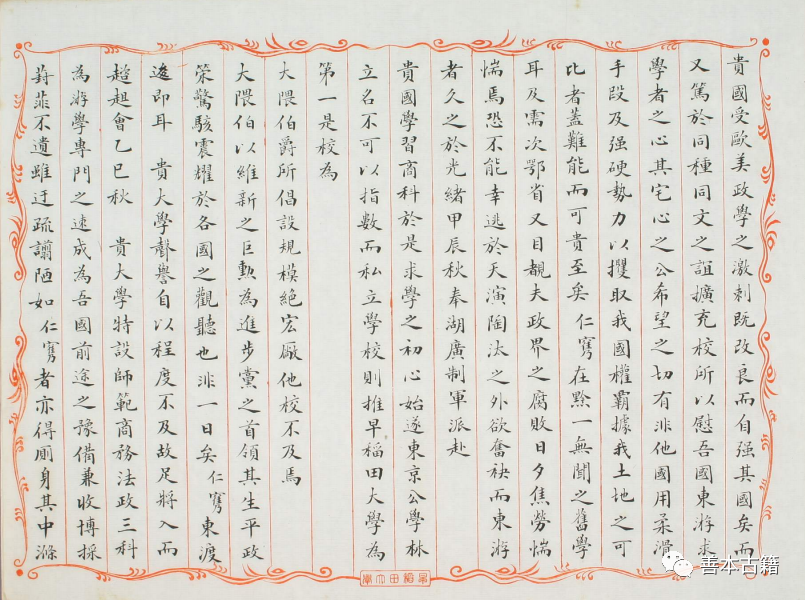 貴國受歐美政學之激刺既改良而自强其國矣而
又篤於同種同文之誼擴充校所以慰吾國東游求
學者之心其宅心之公希望之切有非他國用柔滑
手段及强硬勢力以攫取我國權霸據我土地之可
比者蓋難能而可貴至矣 仁寯在黔一無聞之舊學
耳及需次鄂省又目覩夫政界之腐敗日夕焦勞惴
惴焉恐不能幸逃於天演陶汰之外欲奮袂而東游
者久之於光緒甲辰秋奉湖廣制軍派赴
貴國學習商科於是求學之初心始遂東京公學林
立名不可以指數而私立學校則推早稻田大學為
第一是校為
大隈伯爵所倡設規模絶宏廠他校不及焉
大隈伯以維新之巨勲為進步黨之首領其生平政
策驚駭震耀於各國之觀聽也非一日矣 仁寯東渡
逡即耳 貴大學聲譽自以程度不及故足將入而
趑趄會乙巳秋 貴大學特設師範商務法政三科
為游學專門之速成為吾國前途之豫備兼收博採
葑菲不遺雖迂疏譾陋如 仁寯者亦得厠身其中滌
早稻田大學
善本古籍